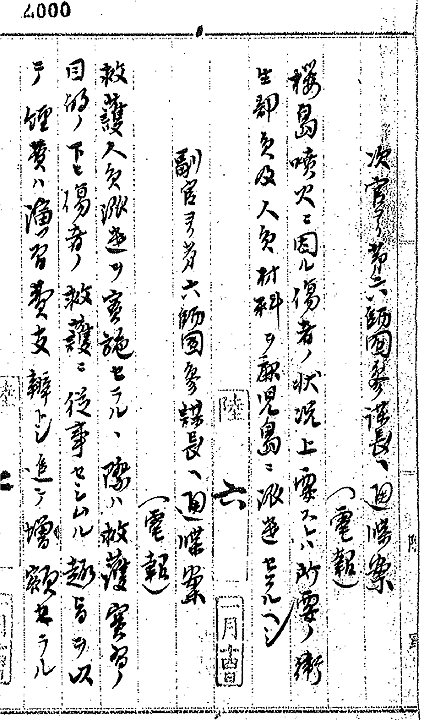 4000
次官ヨリ第六師団参謀長ヘ通牒案
(電報)
桜島噴火ニ因ル傷者ノ状况上要スレハ所要ノ衛
生部員及人員材料ヲ鹿児島ニ派遣セラルヘシ
陸
六
一月十四日
副官ヨリ第六師団参謀長ヘ通牒案
(電報)
救護人員派遣ヲ実施セラルヽ際ハ救護実習ノ
目的ノ下ニ傷者ノ救護ニ従事セシムル趣旨ヲ以
テ経費ハ演習費支弁トシ追テ増額セラル
陸